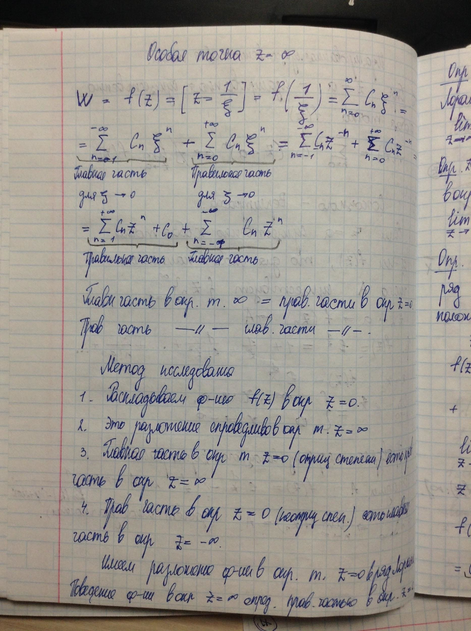 Особая точка z = ∞
W = f(z) = [z = 1/ξ] = f(1/ξ) = ∑ Cₙ ξⁿ =
= ∑ Cₙ ξⁿ + ∑ Cₙ ξⁿ = ∑ Cₙ z⁻ⁿ + ∑ Cₙ z⁻ⁿ =
Главная часть Правильная часть
для ξ → 0 для ξ → 0
= ∑ Cₙ zⁿ + C₀ + ∑ Cₙ zⁿ
Правильная часть Главная часть
Главн часть в окр. т. ∞ = прав. части в окр z=0
Прав часть —〃— глав. части —〃—.
Метод исследования
1. Раскладоваем ф-цию f(z) в окр z=0.
2. Это разложение справедливо в окр т. z=∞
3. Главная часть в окр т. z=0 (отриц степени) есть
часть в окр z=∞
4. Прав часть в окр z=0 (неотриц степ.) есть главная
часть в окр
Имеем разложение ф-ции в окр. т. z=0 в ряд Лорана
Поведение ф-ии в окр z=∞ опред. прав. частью в окр.
Опр
Лоран
lim
Опр.
в окр
lim
Опр.
ряд
полож
f(z
+
lim